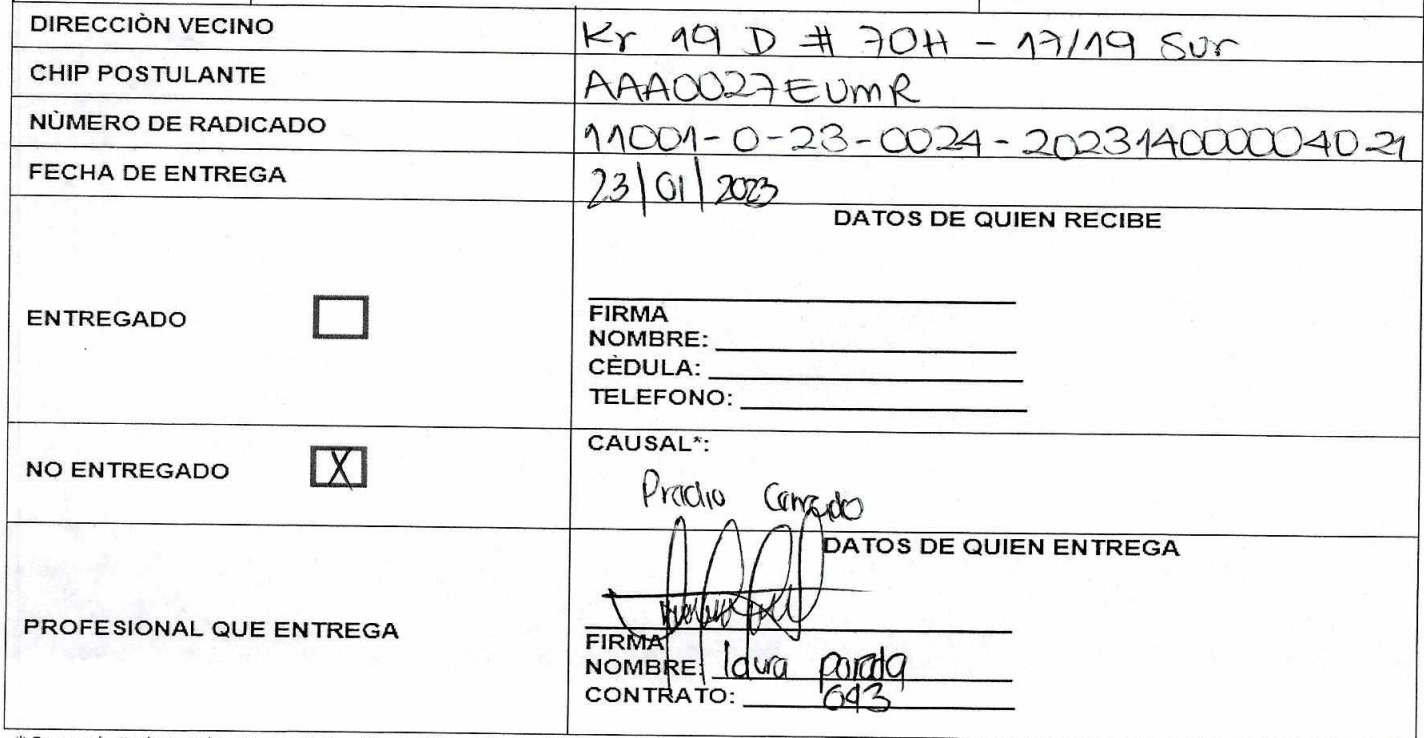 DIRECCIÒN VECINO Kr 19 D # 70H - 17/19 Sur
CHIP POSTULANTE AAA0027EUMR
NÙMERO DE RADICADO 11001-0-23-0024-202314000004021
FECHA DE ENTREGA 23/01/2023
DATOS DE QUIEN RECIBE
ENTREGADO
FIRMA
NOMBRE:
CÈDULA:
TELEFONO:
NO ENTREGADO X
CAUSAL*:
Predio Cerrado
DATOS DE QUIEN ENTREGA
PROFESIONAL QUE ENTREGA
FIRMA
NOMBRE: laura parada
CONTRATO: 643